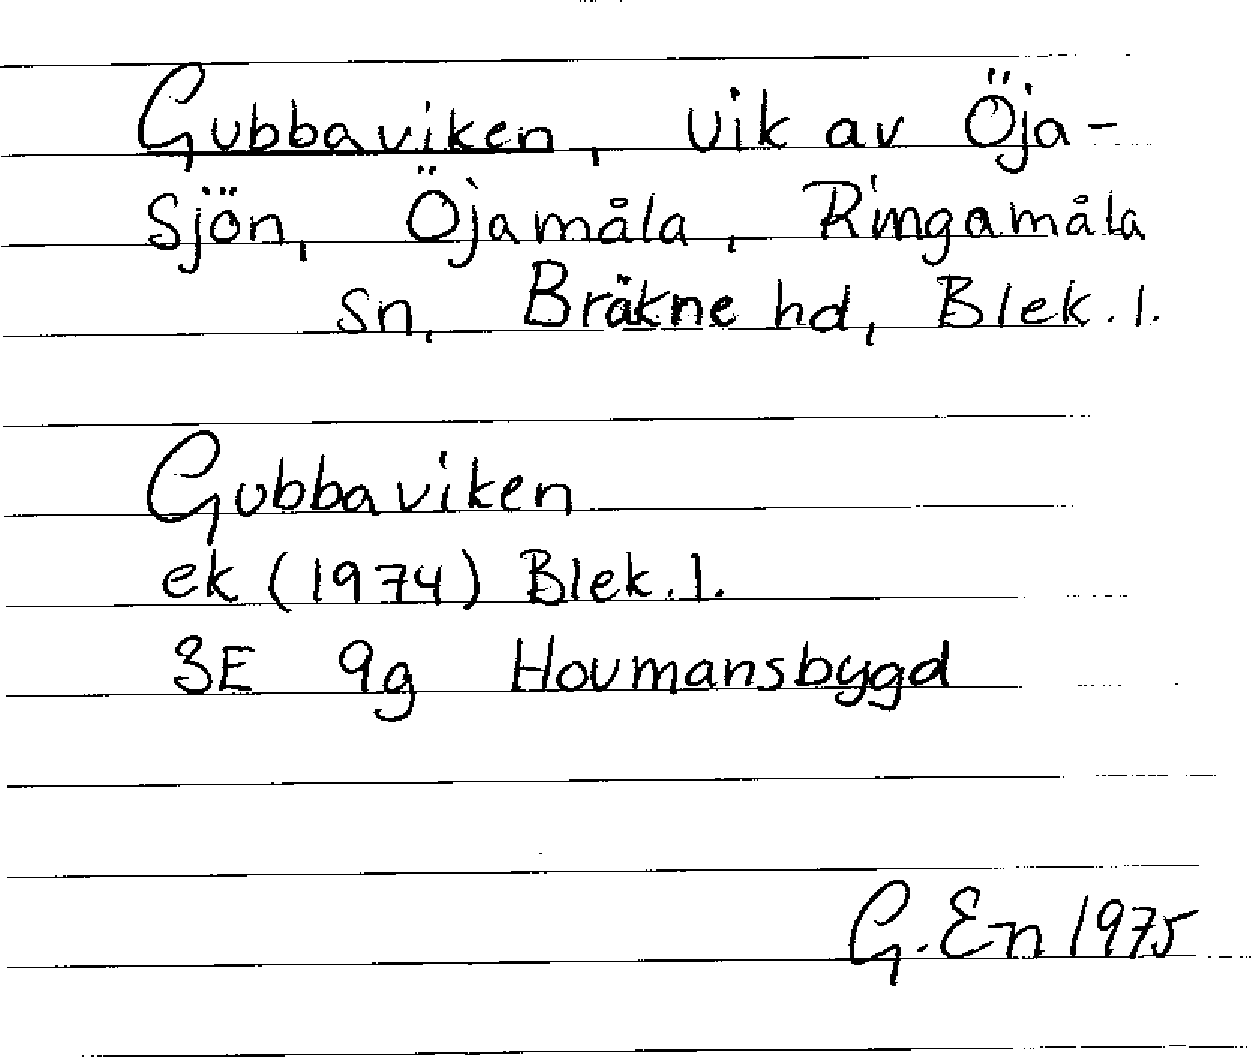 Gubbaviken, vik av Öja-
sjön, Öjamåla, Ringamåla
sn, Bräkne hd, Blek. l.
Gubbaviken
ek (1974) Blek. l.
3E 9g Hovmansbygd
G. En 1975